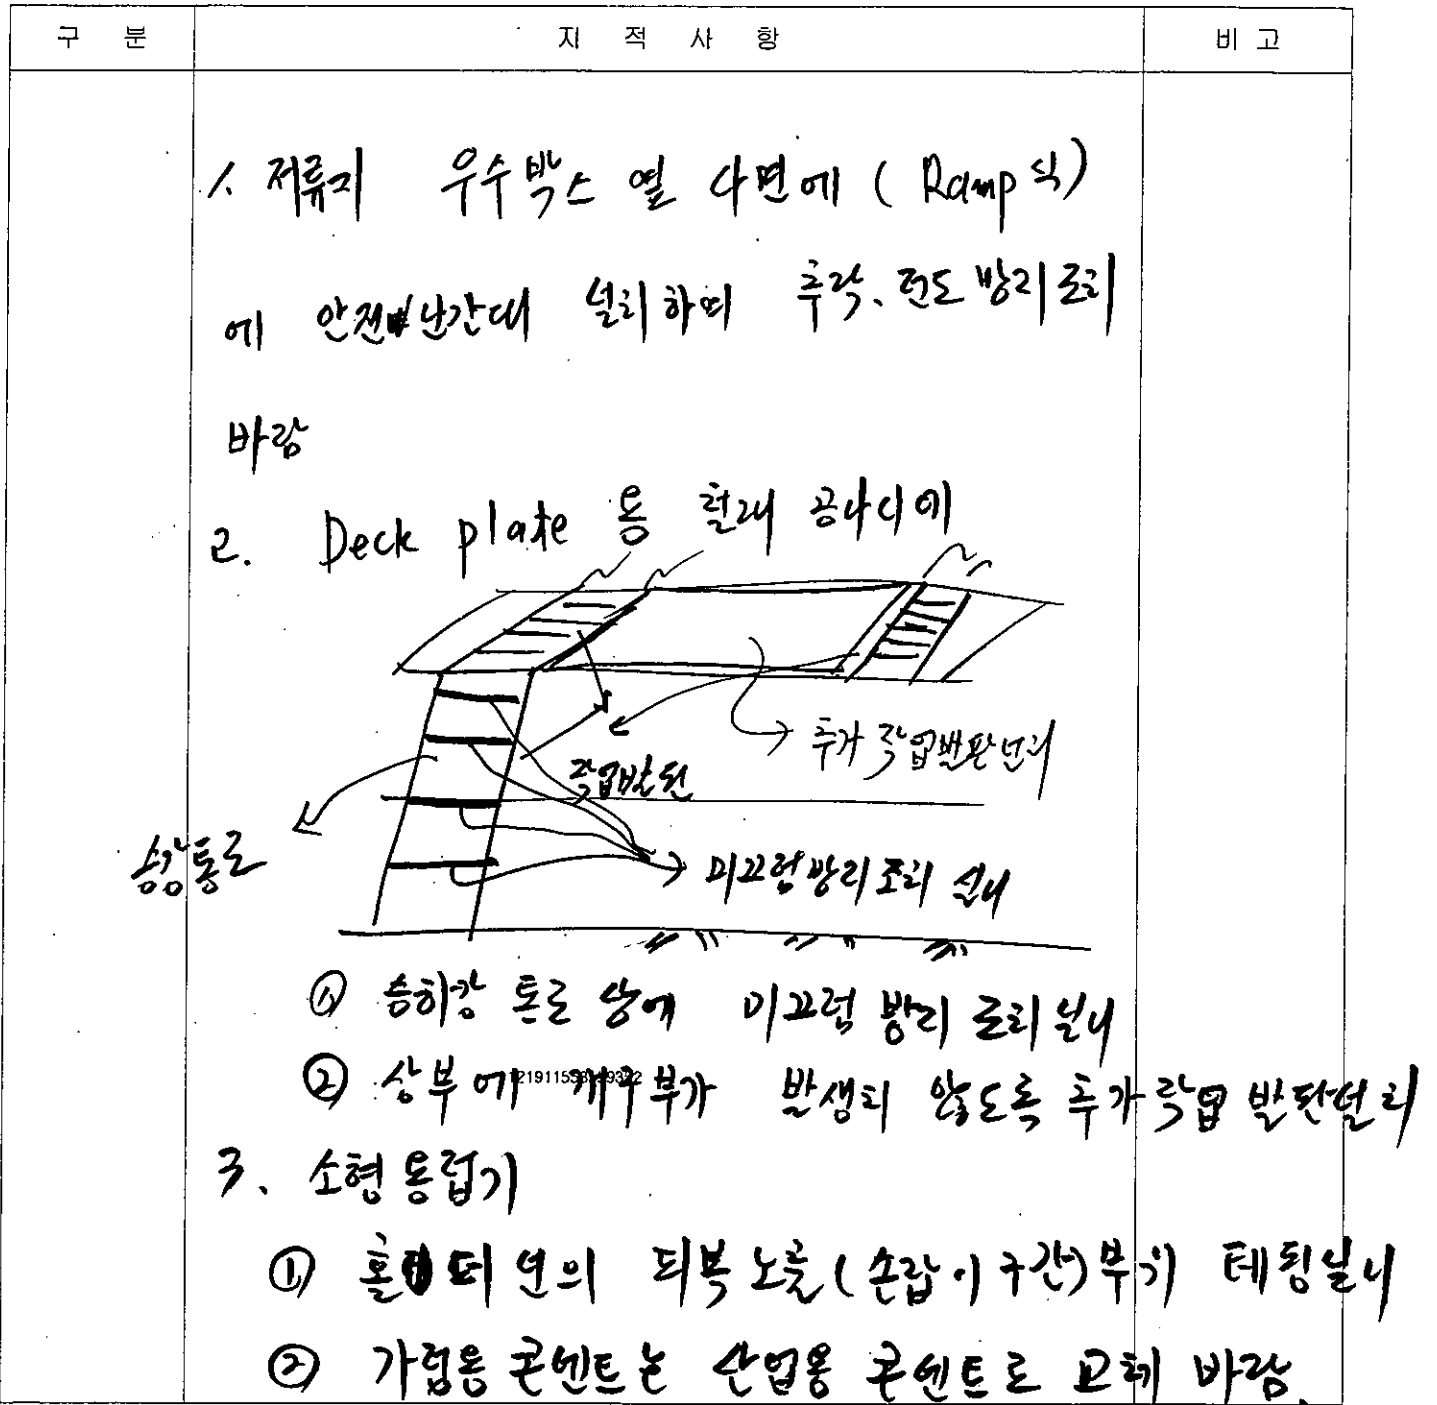 구 분 지 적 사 항 비 고
1. 저류지 우수박스 옆 사면에 ( Ramp 식)
에 안전난간대 설치하여 추락, 전도 방지 조치
바람
2. Deck plate 용 철재 공사시에
추가 작업발판 설치
작업발판
승강통로
미끄럼방지조치 실시
① 승하강 통로 상에 미끄럼 방지 조치 실시
② 상부에 개구부가 발생치 않도록 추가 작업 발판설치
3. 소형 용접기
① 홀더 선의 피복 노출 (손잡이 구간) 부위 테핑실시
② 가정용 콘센트는 산업용 콘센트로 교체 바람.